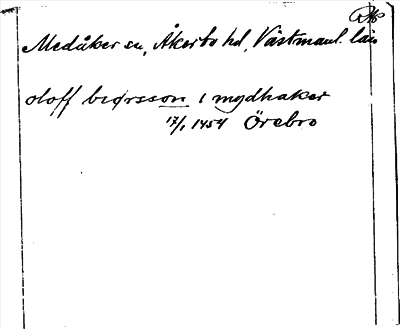 Medåker sn, Åkerbo hd, Västmanl. län
oloff biørsson i mydhaker
17/1 1454 Örebro